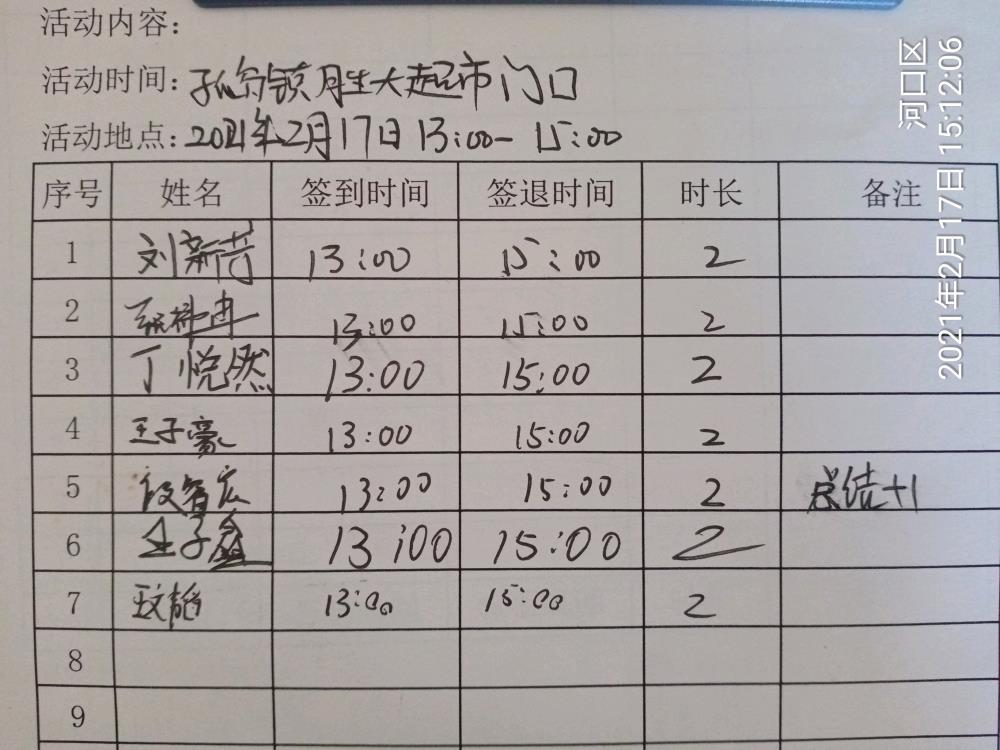 活动内容:
活动时间:孤岛镇胜大超市门口
活动地点:2021年2月17日13:00-15:00
序号 姓名 签到时间 签退时间 时长 备注
1 刘新芳 13:00 15:00 2
2 13:00 15:00 2
3 丁悦然 13:00 15:00 2
4 王子豪 13:00 15:00 2
5 段智宏 13:00 15:00 2 总结+1
6 王子鑫 13:00 15:00 2
7 13:00 15:00 2
8
9
河口区
2021年2月17日 15:12:06